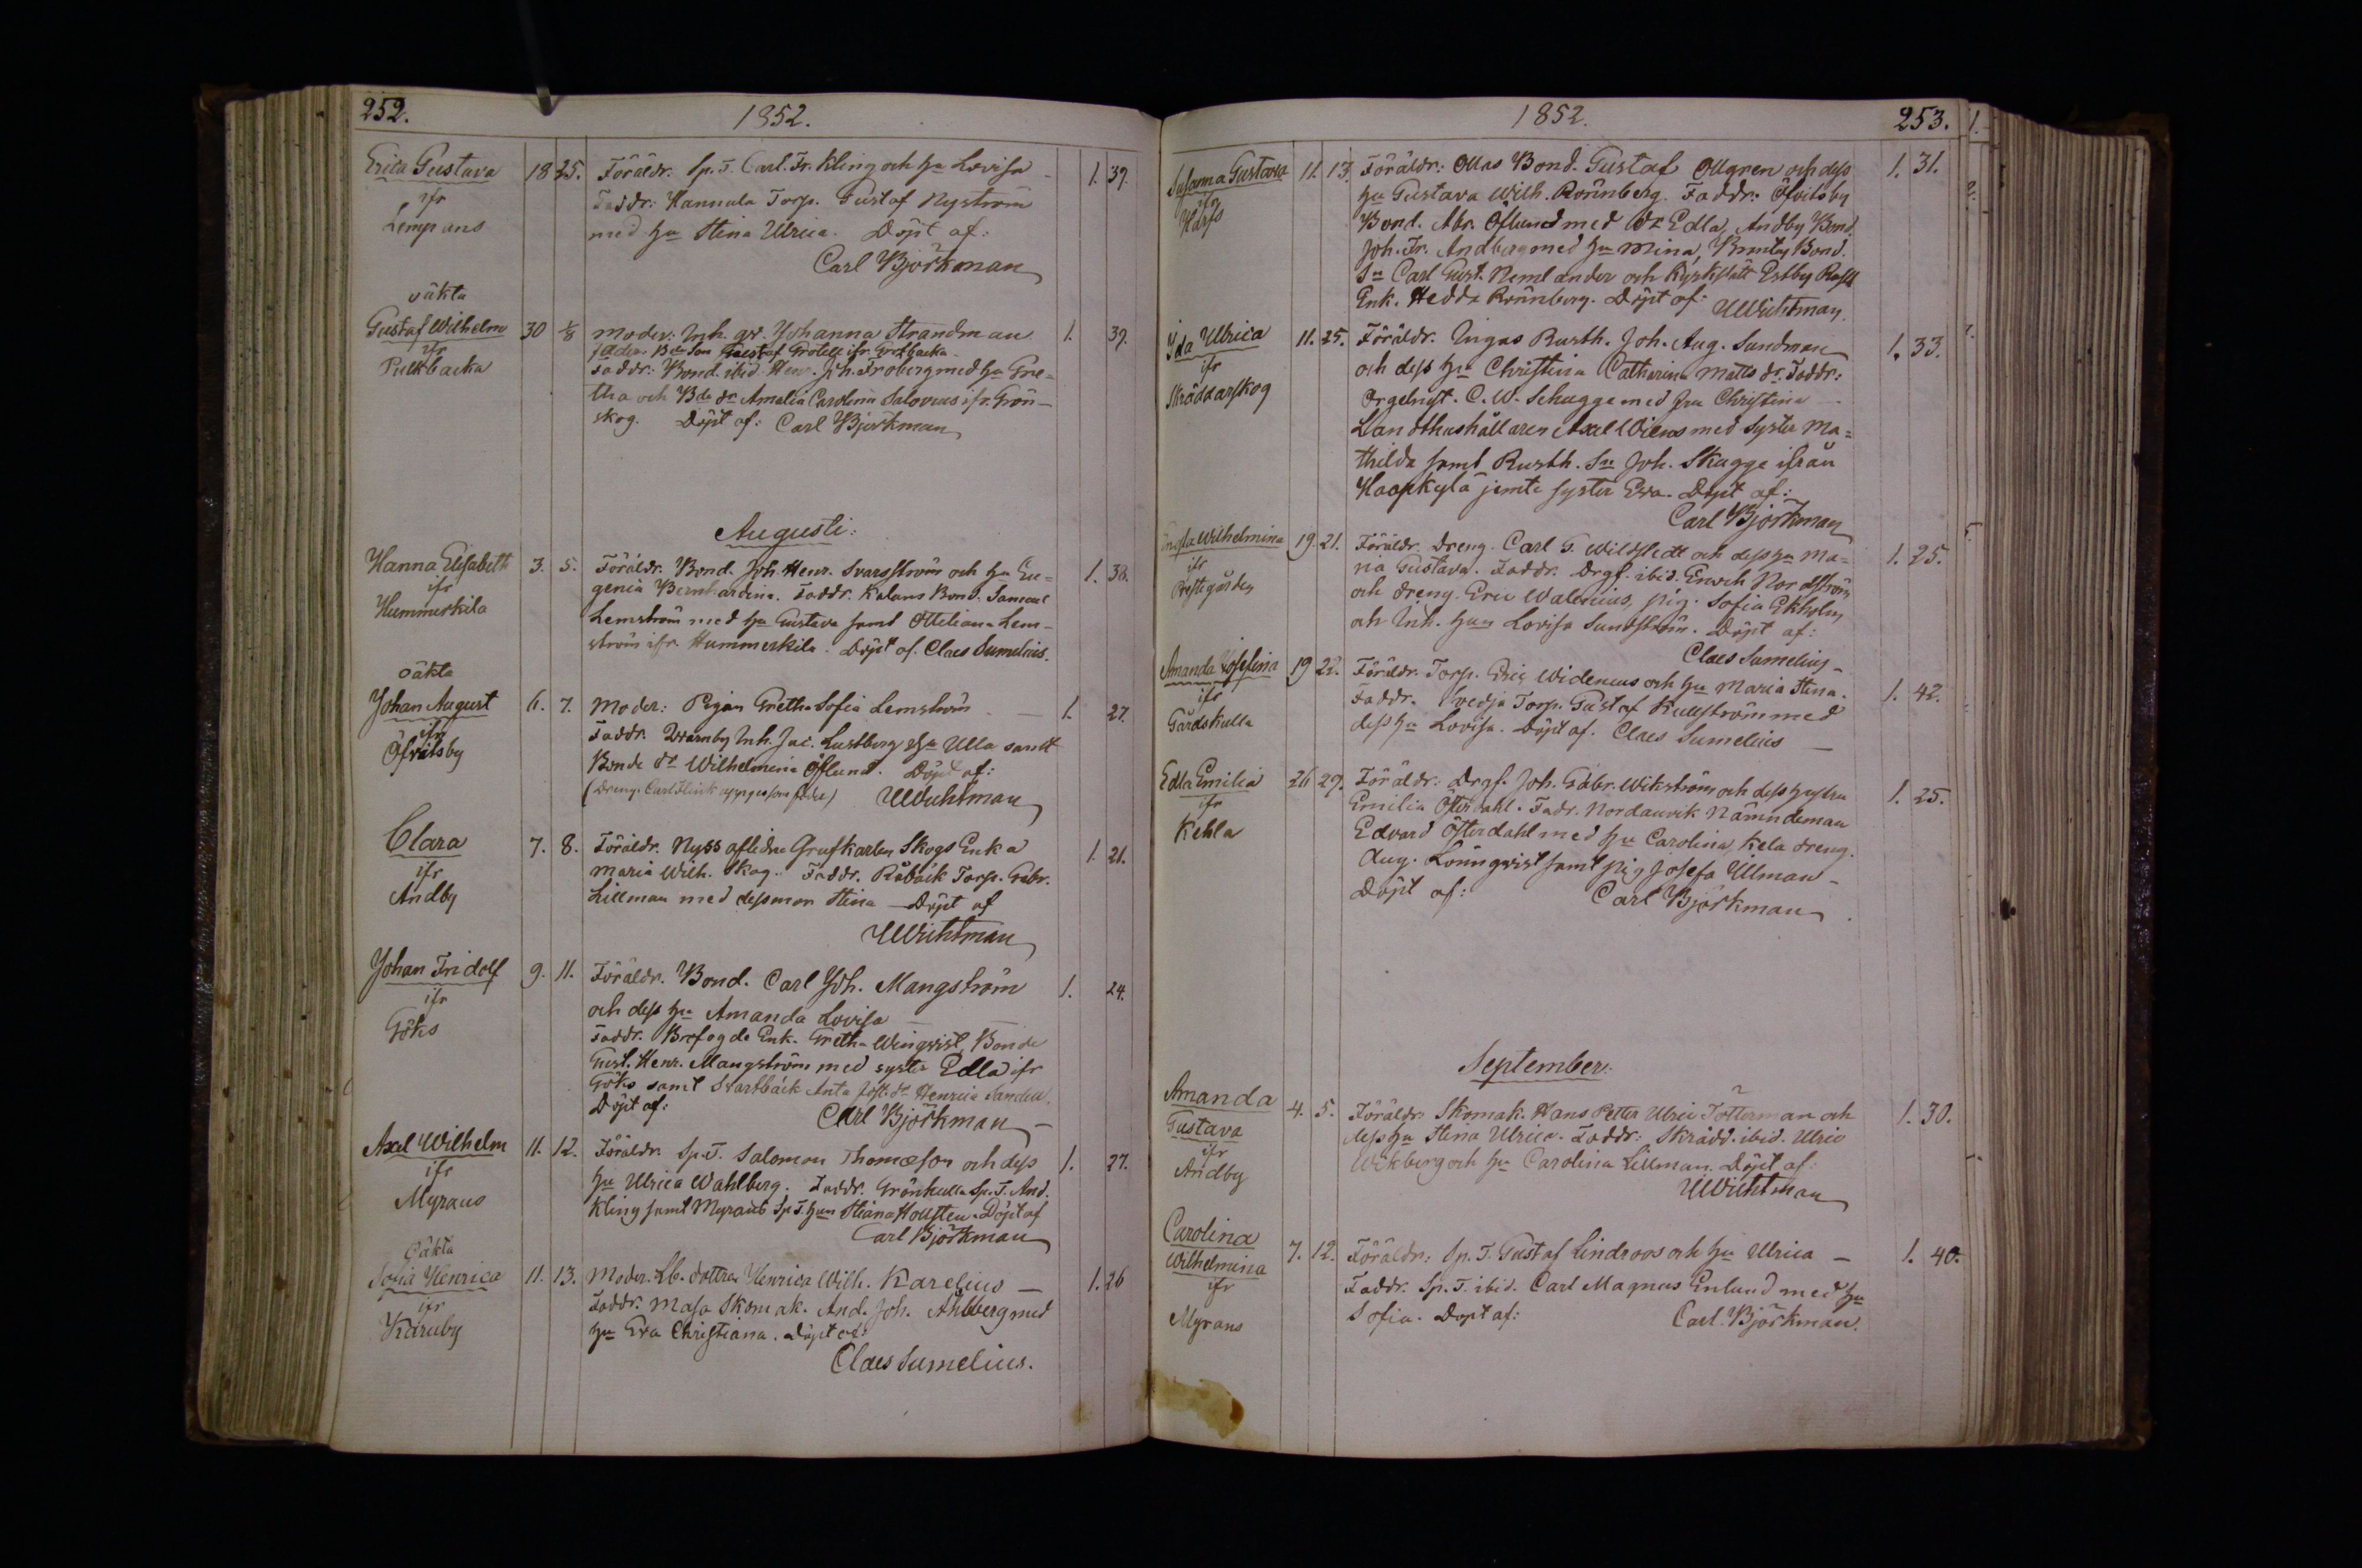 252.
1852.
Erica Gustava 18 25. Föräldr. Sp. T. Carl Fr. Kling och hu Lovisa 1. 39.
ifr
Lempans
Faddr: Hannula Torp. Gustaf Nyström
med hu Stina Ulrica. Döpt af:
Carl Björkman
oäkta
Gustaf Wilhelm 30 1/8 Moder: Inh. Johanna Strandman 1. 39.
ifr
Pickbacka
fader: Son Gustaf Grotell ifr
Faddr: Bond. ibid. Henr. Joh. Froberg med hu Gre=
tha och Bde dr Amalia Carolina Salovius ifr. Grön-
skog. Döpt af: Carl Björkman
Augusti:
Hanna Elisabeth 3. 5. Föräldr. Bond. Joh. Henr. Svarsström och hu Eu= 1. 38.
ifr
Hummerkila
genia Bernhardina. Faddr. Kalans Bond. Samuel
Lemström med hu Gustava samt Ottiliana Lem-
ström ifr Hummerkila. Döpt af. Claes Sumelius.
oäkta
Johan August 6. 7. Moder: Pigan Gretha Sofia Lemström 1. 27.
ifr
Öfvitsby
Faddr. Inh. Jac. Lustberg hu Ulla samt
Bonde dr Wilhelmina Öflund. Döpt af:
(Dreng. Carl Flink uppges som fader) UWichtman
Clara 7. 8. Föräldr. Nyss aflidne Grufkarlen Skogs Enka 1. 21.
ifr
Andby
Maria Wilh. Skog. Faddr. Råbäck Torp. Gabr.
Lillman med dess mor Stina Döpt af
UWichtman
Johan Fridolf 9. 11. Föräldr. Bond. Carl Joh. Mangström 1. 24.
ifr
Göks
och dess hu Amanda Lovisa
Faddr. Enk. Gretha Winqvist, Bonde
Gust. Henr. Mangström med syster Edla ifr
Göks samt Svartbäck Henrica
Döpt af: Carl Björkman
Axel Wilhelm 11. 12. Föräldr. Sp. T. Salomon Thomæson och dess 1. 27.
ifr
Myrans
hu Ulrica Wahlberg. Faddr. Grönkulla Sp. T. And.
Kling samt Myrans Sp T. hun Stiana Hollsten. Döpt af
Carl Björkman
Oäkta
Sofia Henrica 11. 13. Moder. Lb. dottren Henrica Wilh. Karelius 1. 26
ifr
Karuby
Faddr. Masa Skomak. And. Joh. Ahlberg med
hu Eva Christiana. Döpt af:
Claes Sumelius.
1852.
253.
Susanna Gustava 11. 13. Föräldr: Ollas Bond. Gustaf Ollgren och dess 1. 31.
ifr
Härs
hu Gustava Wilh. Rönnberg. Faddr: Öfvitsby
Bond. Abr. Öflund med dr Edla, Andby Bond.
Joh. Fr. Andberg med hu Mina, Bond.
Sn Carl Gust. Nemlander och Kyrkslätt Estby
Enk. Hedda Rönnberg. Döpt af: UWichtman
Ida Ulrica 11. 25. Föräldr. Ingas Rusth. Joh. Aug. Sundman 1. 33.
ifr
Skräddarskog
och dess hu Christina Catharina Matts dr. Faddr:
Orgelnist. C. W. Schugge med fru Christina
Landthushållaren Axel Wilens med Syster Ma=
thilda samt Rusth. Sn Joh. Skugge ifrån
Haapkylä jemte syster Eva. Döpt af:
Carl Björkman
Wilhelmina 19. 21. Föräldr. Dreng. Carl G. Wildstedt och dess hu Ma= 1. 25.
ifr
Prestegården
ria Gustava. Faddr. Drgf. ibid. Enoch Nordström
och dreng. Eric Walenius, pig. Sofia Ekholm
och Inh. hun Lovisa Sundström. Döpt af:
Claes Sumelius
Amanda Josefina 19 22. Föräldr. Torp. Eric Widenius och hu Maria Stina. 1. 42.
ifr
Gårdskulla
Faddr. Svedja Torp. Gustaf Kullström med
dess hu Lovisa. Döpt af. Claes Sumelius
Edla Emilia 26 29. Föräldr: Drgf. Joh. Gabr. Wikström och dess hustru 1. 25.
ifr
Kehla
Emilia Österdahl. Fadr. Nordanvik Nämndeman
Edvard Österdahl med hu Carolina, Kela dreng.
Aug. Lönnqvist samt pig Josefa Ullman
Döpt af: Carl Björkman
September:
Amanda 4. 5. Föräldr. Skomak. Hans Petter Ulric Tötterman och 1. 30.
Gustava
ifr
Andby
dess hu Stina Ulrica. Faddr: Skrädd. ibid. Ulric
Wikberg och hu Carolina Lillman. Döpt af:
UWichtman
Carolina
Wilhelmina 7. 12. Föräldr: Sp. T. Gustaf Lindroos och hu Ulrica 1. 40.
ifr
Myrans
Faddr. Sp. T. ibid. Carl Magnus Enlund med hu
Sofia. Döpt af: Carl Björkman.